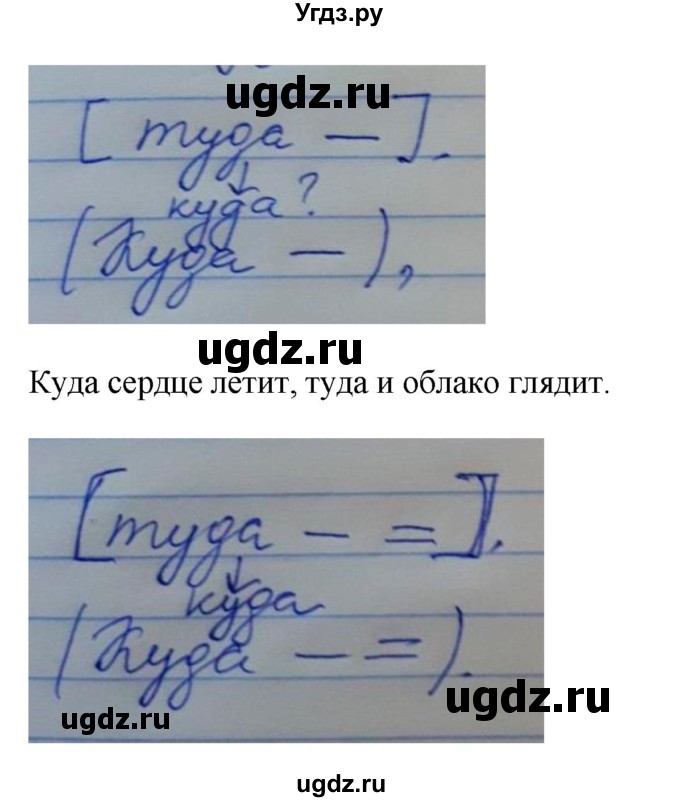 Угдз.ру
ugdz.ru
[ туда — ].
куда?
(Куда — ),
ugdz.ru
Куда сердце летит, туда и облако глядит.
[туда — =].
куда
(Куда — =).
ugdz.ru
ugdz.ru
ugdz.ru